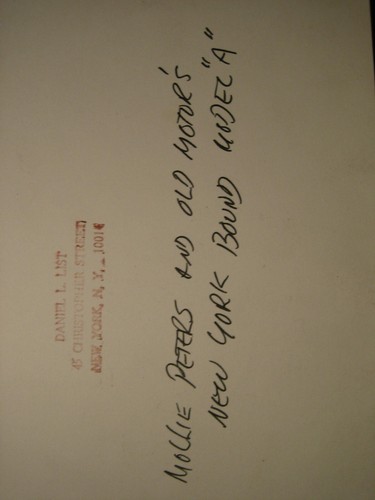 DANIEL L. LIST
45 CHRISTOPHER STREET
NEW YORK, N. Y., 10014
MOLLIE PETERS AND OLD MOTOR'S
NEW YORK BOUND MODEL "A"